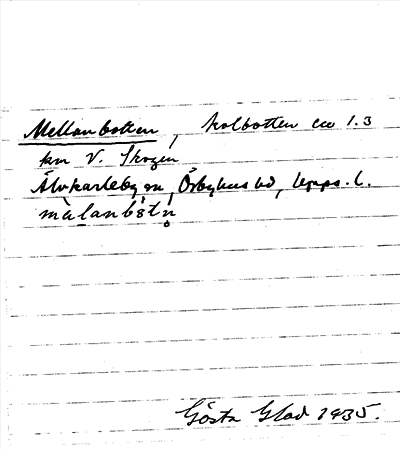 Mellanbotten, kolbotten ca 1.3
km V. Skogen
Älvkarleby sn, Örbyhus hd, Upps. l.
mälanbòtn̥
Gösta Glad 1935.